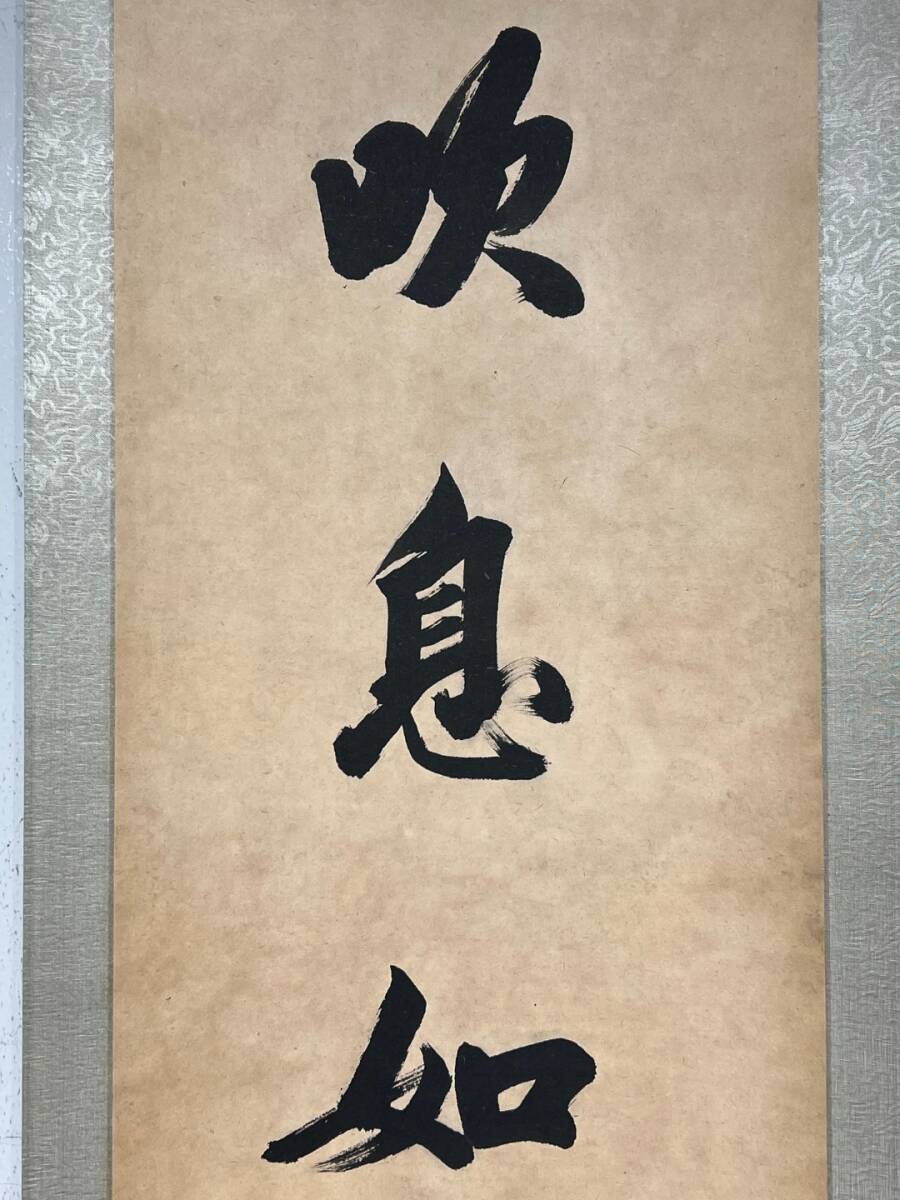 吹息如